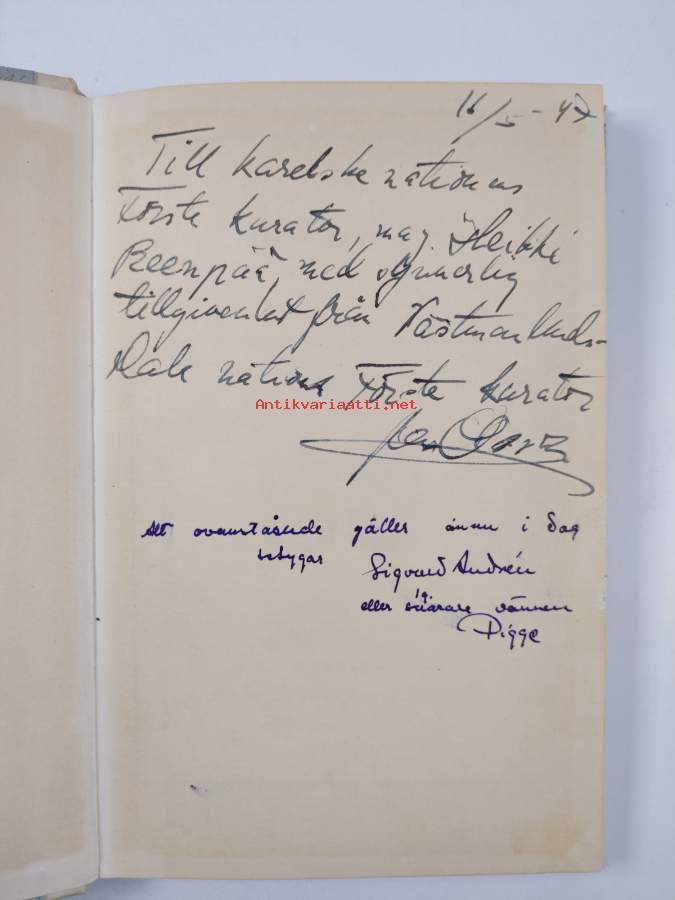 16/5 - 47
Till Karelska nationens
Förste Kurator, mag. Heikki
Reenpää, med synnerlig
tillgivenhet från Västmanlands-
Dala nations Förste Kurator
Antikvariaatti.net
Jan
Att ovanstående gäller ännu i dag
betygar Sigvard Andrén
eller snarare vännen
Pigge